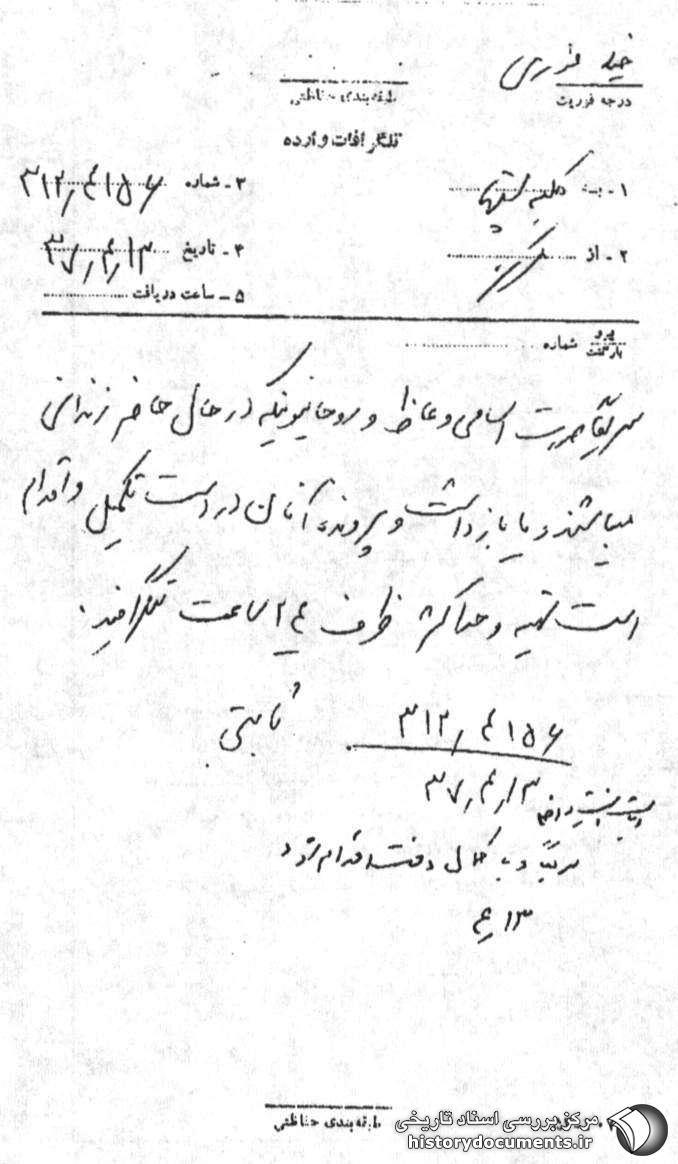 خیلی فوری
درجه فوریت
طبقه‌بندی حفاظتی
تلگرافات وارده
۱ - به کلیه
۳ - شماره ۳۱۲/۴۱۵۶
۲ - از مرکز
۴ - تاریخ ۳۷/۴/۱۳
۵ - ساعت دریافت
پیرو
بازگشت
شماره
سریعا صورت اسامی وعاظ و روحانیونیکه در حال حاضر زندانی
میباشند و یا بازداشت و پرونده آنان در دست تکمیل و اقدام
است تهیه و حداکثر ظرف ۲۴ ساعت تلگرافید.
ثابتی
۳۱۲/۴۱۵۶
۳۷/۴/۱۳
سریعاً و با کمال دقت اقدام شود
۱۳/۴
طبقه‌بندی حفاظتی
مرکز بررسی اسناد تاریخی
historydocuments.ir